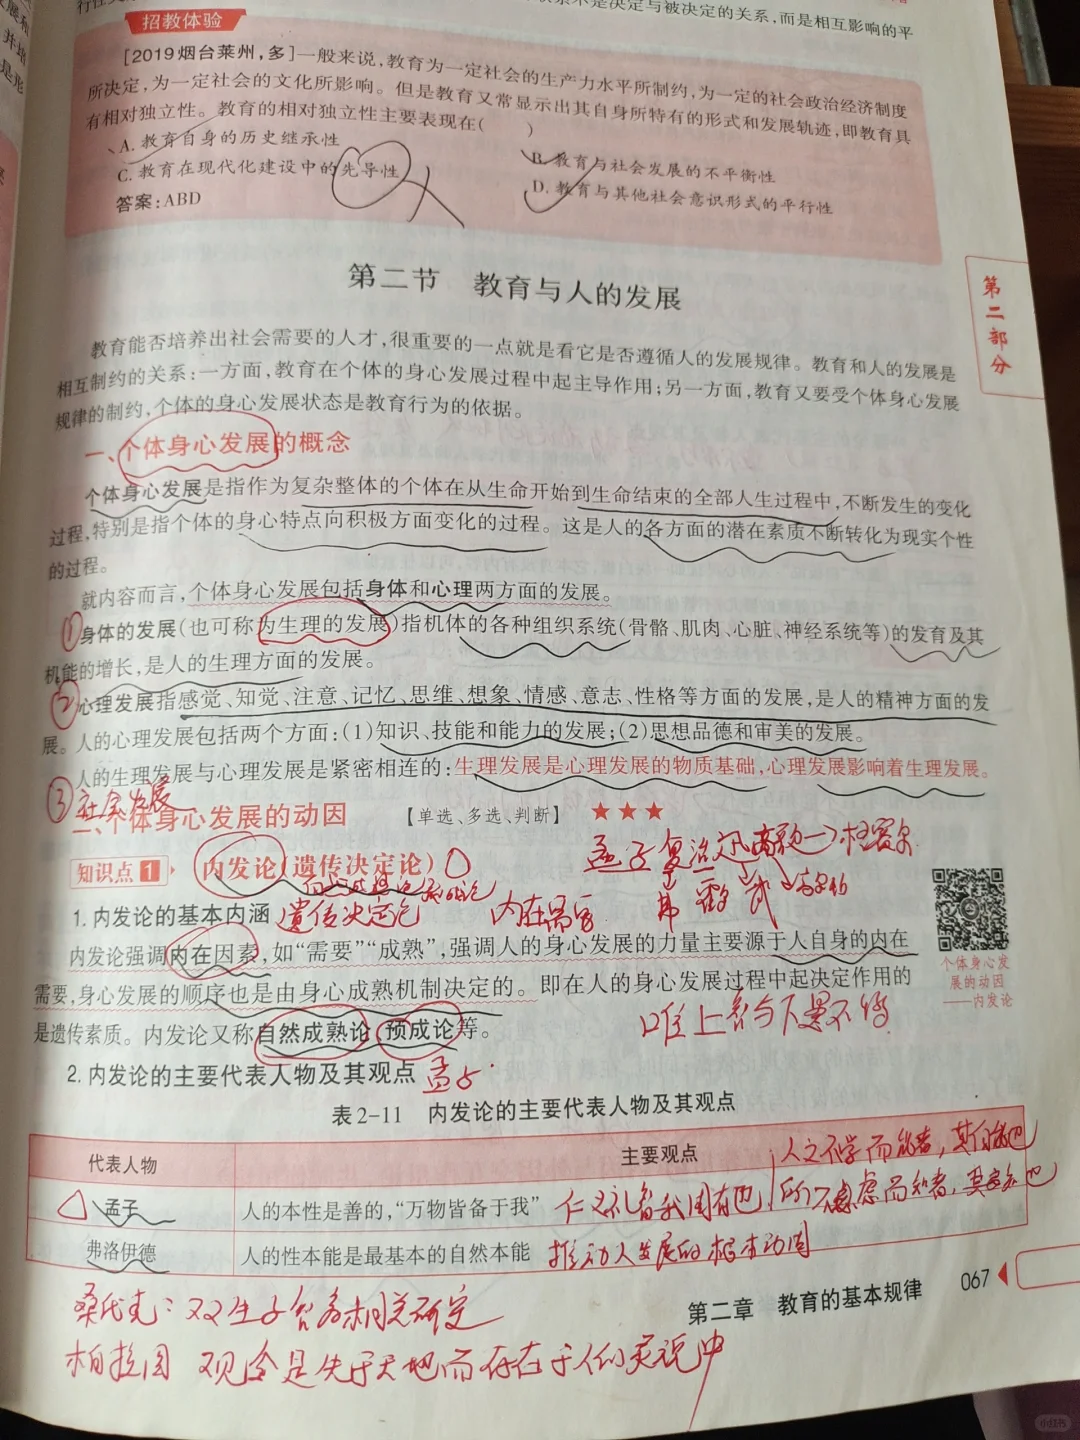 不是决定与被决定的关系,而是相互影响的平
招教体验
[2019烟台莱州,多]一般来说,教育为一定社会的生产力水平所制约,为一定的社会政治经济制度
所决定,为一定社会的文化所影响。但是教育又常显示出其自身所特有的形式和发展轨迹,即教育具
有相对独立性。教育的相对独立性主要表现在( )
A. 教育自身的历史继承性
B. 教育与社会发展的不平衡性
C. 教育在现代化建设中的先导性
D. 教育与其他社会意识形式的平行性
答案:ABD
第二节 教育与人的发展
第二部分
教育能否培养出社会需要的人才,很重要的一点就是看它是否遵循人的发展规律。教育和人的发展是
相互制约的关系:一方面,教育在个体的身心发展过程中起主导作用;另一方面,教育又要受个体身心发展
规律的制约,个体的身心发展状态是教育行为的依据。
一、个体身心发展的概念
个体身心发展是指作为复杂整体的个体在从生命开始到生命结束的全部人生过程中,不断发生的变化
过程,特别是指个体的身心特点向积极方面变化的过程。这是人的各方面的潜在素质不断转化为现实个性
的过程。
就内容而言,个体身心发展包括身体和心理两方面的发展。
①身体的发展(也可称为生理的发展)指机体的各种组织系统(骨骼、肌肉、心脏、神经系统等)的发育及其
机能的增长,是人的生理方面的发展。
②心理发展指感觉、知觉、注意、记忆、思维、想象、情感、意志、性格等方面的发展,是人的精神方面的发
展。人的心理发展包括两个方面:(1)知识、技能和能力的发展;(2)思想品德和审美的发展。
人的生理发展与心理发展是紧密相连的:生理发展是心理发展的物质基础,心理发展影响着生理发展。
③社会发展
二、个体身心发展的动因 【单选、多选、判断】 ★★★
知识点1 内发论(遗传决定论)
1. 内发论的基本内涵 遗传决定论 内在因素
内发论强调内在因素,如“需要”“成熟”,强调人的身心发展的力量主要源于人自身的内在
需要,身心发展的顺序也是由身心成熟机制决定的。即在人的身心发展过程中起决定作用的
是遗传素质。内发论又称自然成熟论、预成论等。
个体身心发
展的动因
——内发论
唯上智与下愚不移
2. 内发论的主要代表人物及其观点 孟子
表2-11 内发论的主要代表人物及其观点
代表人物 主要观点
人之不学而能者,其良能也
孟子 人的本性是善的,“万物皆备于我” 仁义礼智我固有也 所不虑而知者,其良知也
弗洛伊德 人的性本能是最基本的自然本能 推动人发展的根本动因
第二章 教育的基本规律 067
桑代克:双生子智多相关研究
柏拉图 观念是先于天地而存在于人们灵魂中
小红书